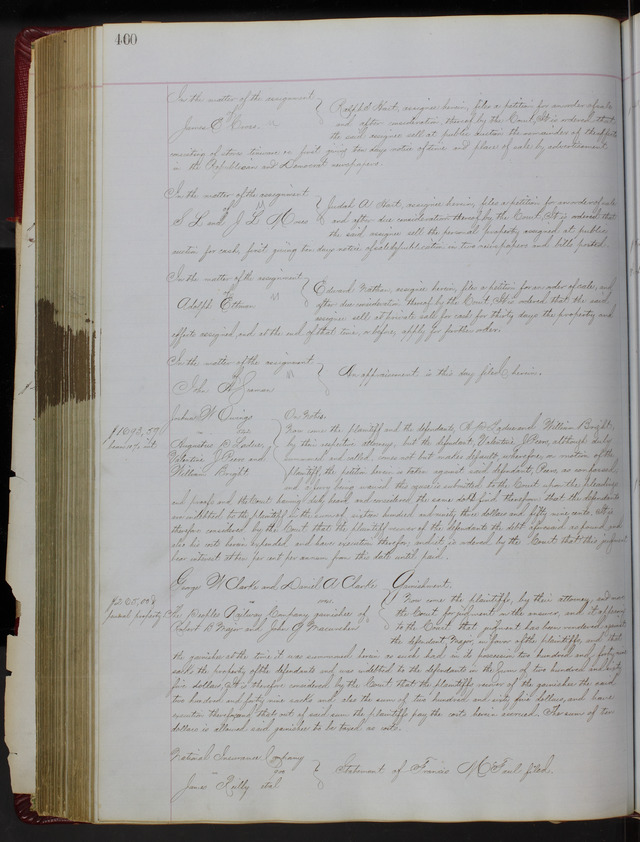 400
In the matter of the assignment
of
James E Hines
Ralph Hart, assignee herein, files a petition for an order of sale
and after consideration thereof by the Court, It is ordered that
the said assignee sell at public auction the remainder of the effects
consisting of store in first giving ten days notice of time and place of sale by advertisement
in the Republican and Democrat newspapers.
In the matter of the assignment
of
S L and J L Hines
Judah A Hart, assignee herein, files a petition for an order of sale
and after due consideration thereof by the Court, It is ordered that
the said assignee sell the personal property assigned at public
auction for cash, first giving ten days notice of sale by publication in two newspapers and bills posted.
In the matter of the assignment
of
Adolph Ettman
Edward assignee herein, files a petition for an order of sale, and
after due consideration thereof by the Court It is ordered that the said
assignee sell at private sale for cash for thirty days the property and
effects assigned, and at the end of that time, or before, apply for further order.
In the matter of the assignment
of
John H
An appraisement is this day filed herein.
Joshua W Owings
vs
Augustus B
Valentine J Peers and
William Bright
$1693.59
bears 10% int.
On Notes.
Now come the plaintiff and the defendants, A B and William Bright,
by their respective attorneys, but the defendant, Valentine J Peers, although duly
summoned and called, comes not but makes default, wherefore, on motion of the
plaintiff, the petition herein is taken against said defendant, Peers, as confessed,
and a jury being waived the cause is submitted to the Court upon the pleadings
and proofs and the Court having duly heard and considered the same doth find therefrom that the defendants
are indebted to the plaintiff in the sum of sixteen hundred and ninety three dollars and fifty nine cents. It is
therefore considered by the Court that the plaintiff recover of the defendants the debt aforesaid as found and
also his costs herein expended and have execution therefor, and it is ordered by the Court that this judgment
bear interest at ten per cent per annum from this date until paid.
George W Clarke and Daniel A Clarke
vs.
The Peoples Railway Company garnishee of
Robert B Major and John G
personal property
Garnishment.
Now come the plaintiffs, by their attorney, and move
the Court for judgment on the answer, and it appearing
to the Court that judgment has been rendered against
the defendant Major, in favor of the plaintiffs, and that
the garnishee at the time it was summoned herein as such had in its possession two hundred and forty nine
sacks the property of the defendants and was indebted to the defendants in the sum of two hundred and sixty
five dollars, It is therefore considered by the Court that the plaintiffs recover of the garnishee the said
two hundred and forty nine sacks and also the sum of two hundred and sixty five dollars, and have
execution therefor, and that out of said sum the plaintiffs pay the costs herein accrued. The sum of ten
dollars is allowed said garnishee to be taxed as costs.
National Insurance Company
vs
James Reilly et al
Statement of Francis M Paul filed.